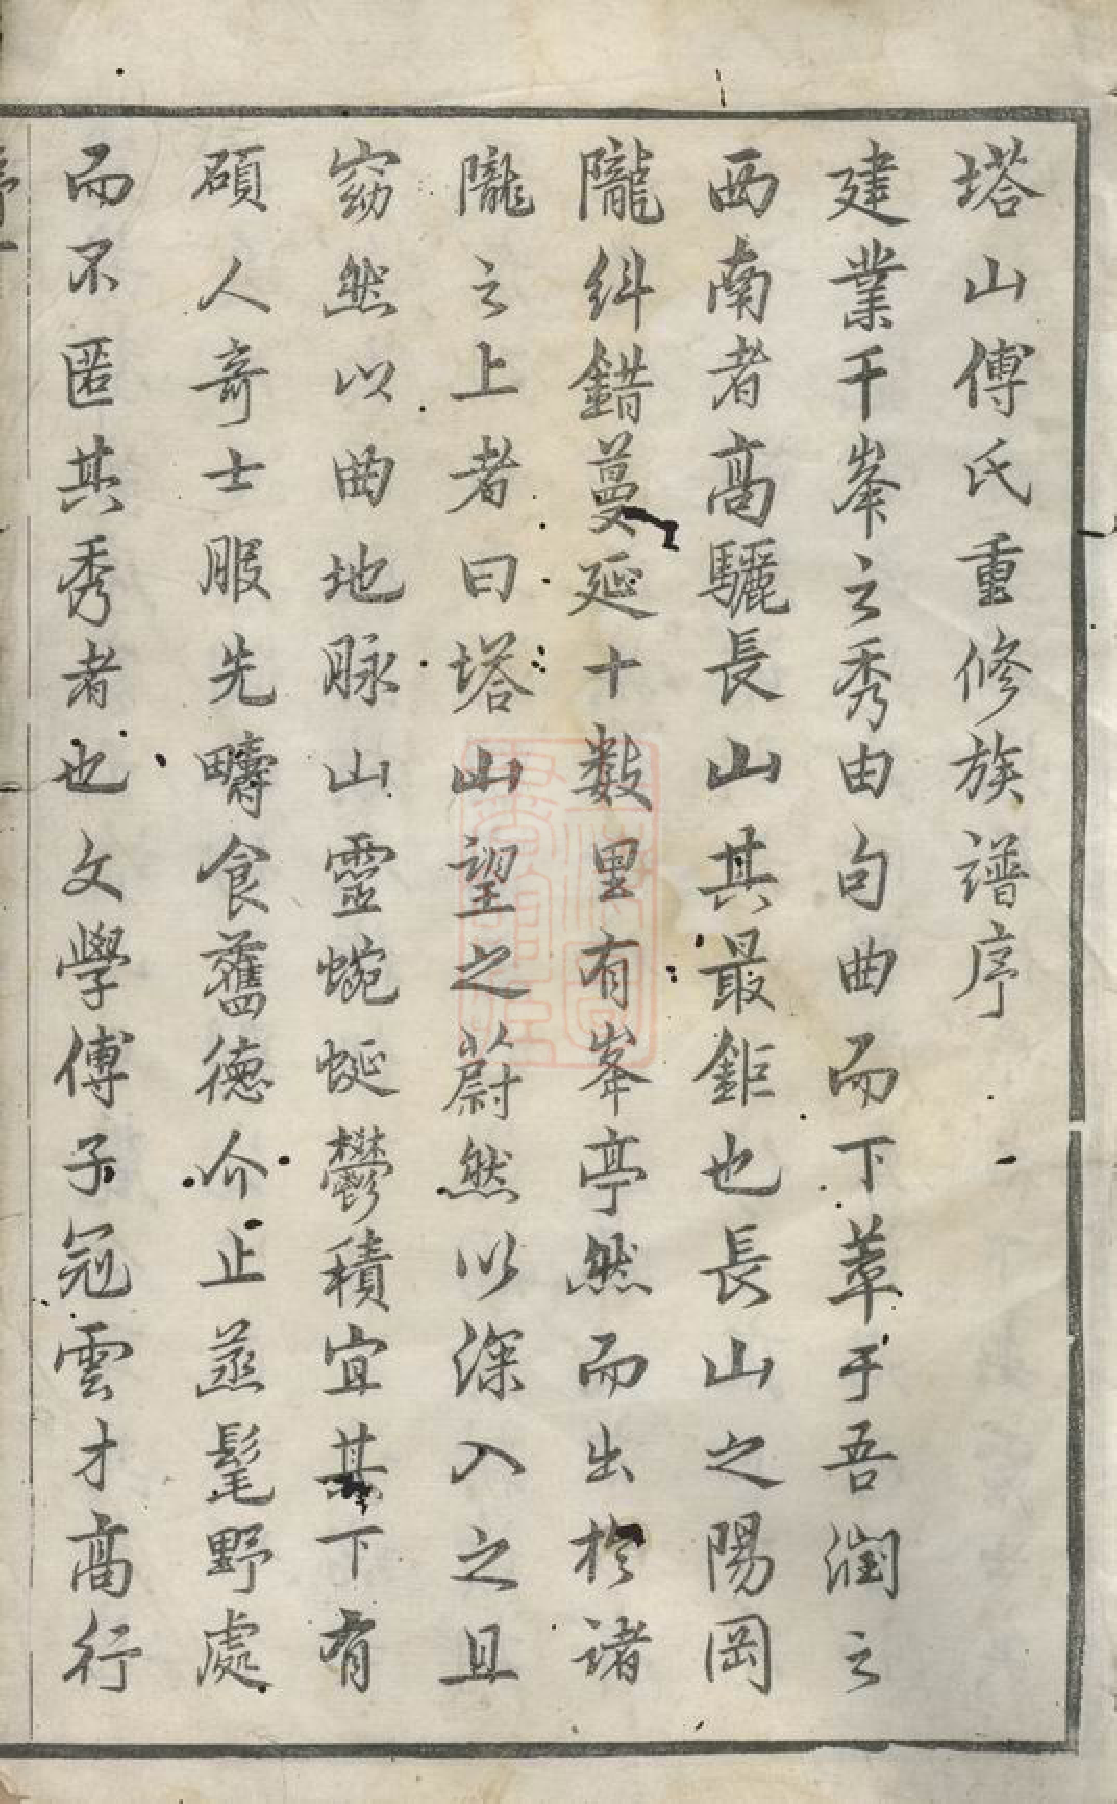 塔山傅氏重修族譜序
建業千峯之秀由句曲而下萃于吾潤之
西南者高驪長山其最鉅也長山之陽岡
隴糾錯蔓延十数里有峯亭然而出於諸
隴之上者曰塔山望之蔚然以深入之且
窈然以曲地脉山靈蜿蜒鬱積宜其下有
碩人奇士服先疇食舊德介止烝髦野處
而不匿其秀者也文學傅子冠雲才高行